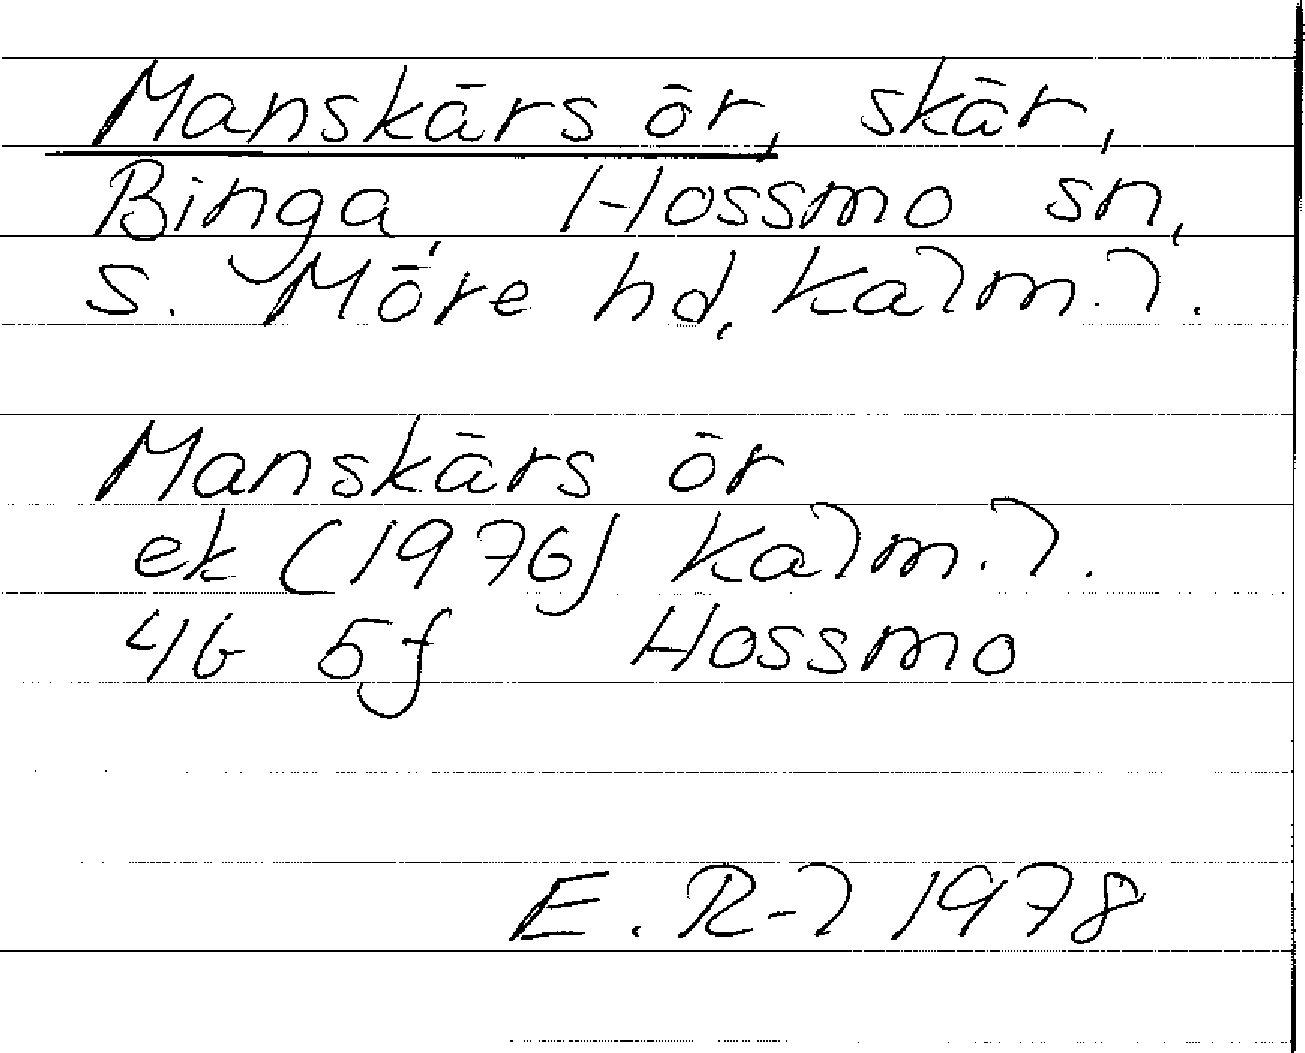 Manskärs ör, skär,
Binga, Hossmo sn,
s. Möre hd, Kalm. l.
Manskärs ör
ek (1976) Kalm. l.
4G 5f Hossmo
E. R-l 1978